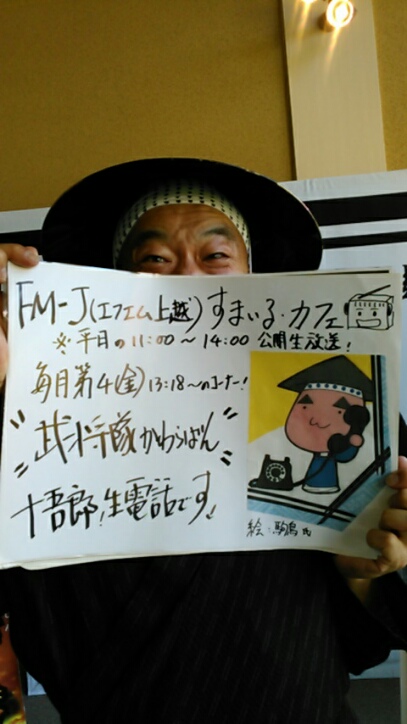 FM-J(エフエム上越)すまいる・カフェ
※平日の11:00〜14:00 公開生放送!
毎月第4(金)13:18〜のコーナー!
"武将隊かわらばん"
十吾郎!生電話です!
絵:駒鳥氏